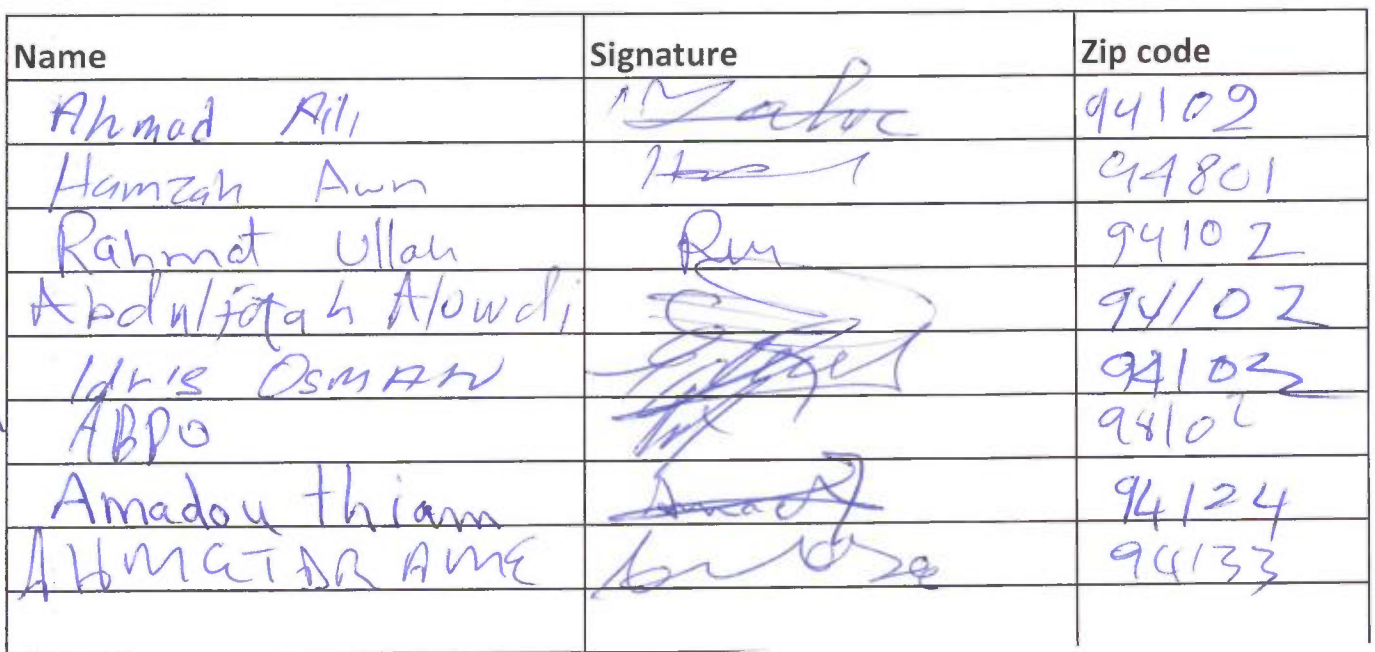 Name Signature Zip code
Ahmad Aili 94102
Hamzah Awn 94801
Rahmat Ullah 94102
Abdulfatah Alowdi 94102
Idris OSMAN 94102
ABDO 94102
Amadou thiam 94124
AHMET DRAME 94133